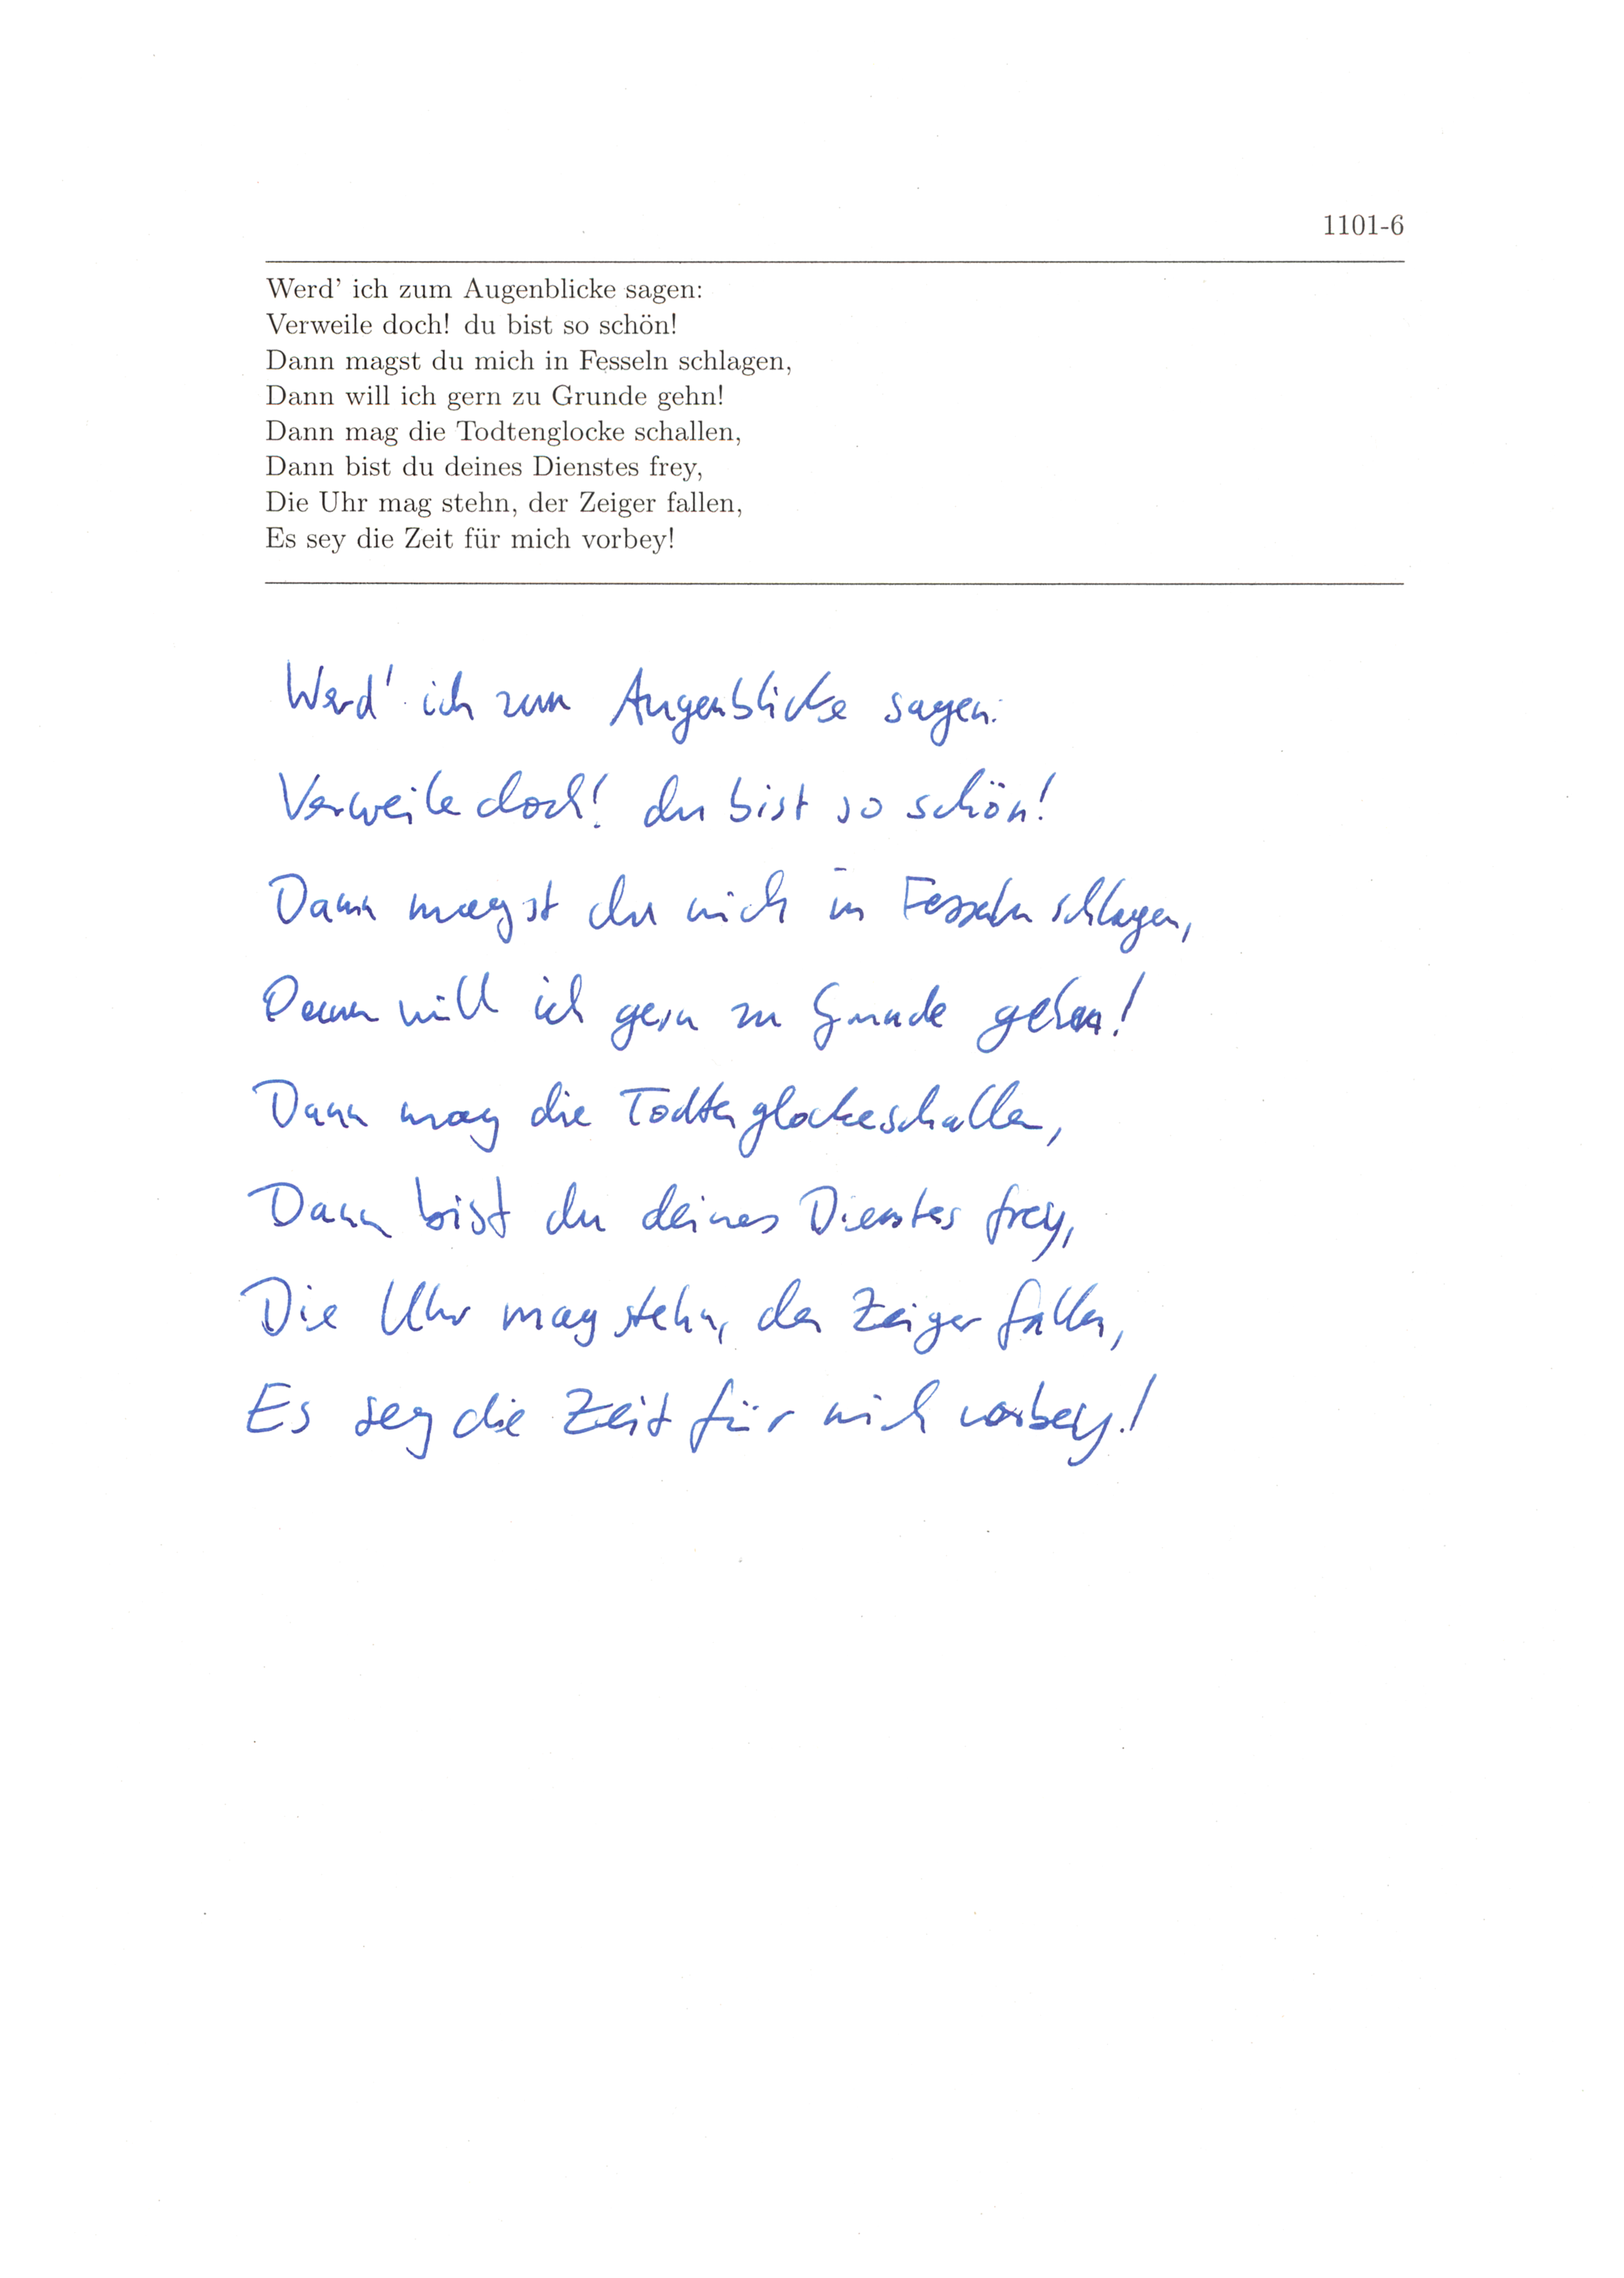 1101-6
Werd' ich zum Augenblicke sagen:
Verweile doch! du bist so schön!
Dann magst du mich in Fesseln schlagen,
Dann will ich gern zu Grunde gehn!
Dann mag die Todtenglocke schallen,
Dann bist du deines Dienstes frey,
Die Uhr mag stehn, der Zeiger fallen,
Es sey die Zeit für mich vorbey!
Werd' ich zum Augenblicke sagen:
Verweile doch! du bist so schön!
Dann magst du mich in Fesseln schlagen,
Dann will ich gern zu Grunde gehn!
Dann mag die Todtenglocke schallen,
Dann bist du deines Dienstes frey,
Die Uhr mag stehn, der Zeiger fallen,
Es sey die Zeit für mich vorbey!